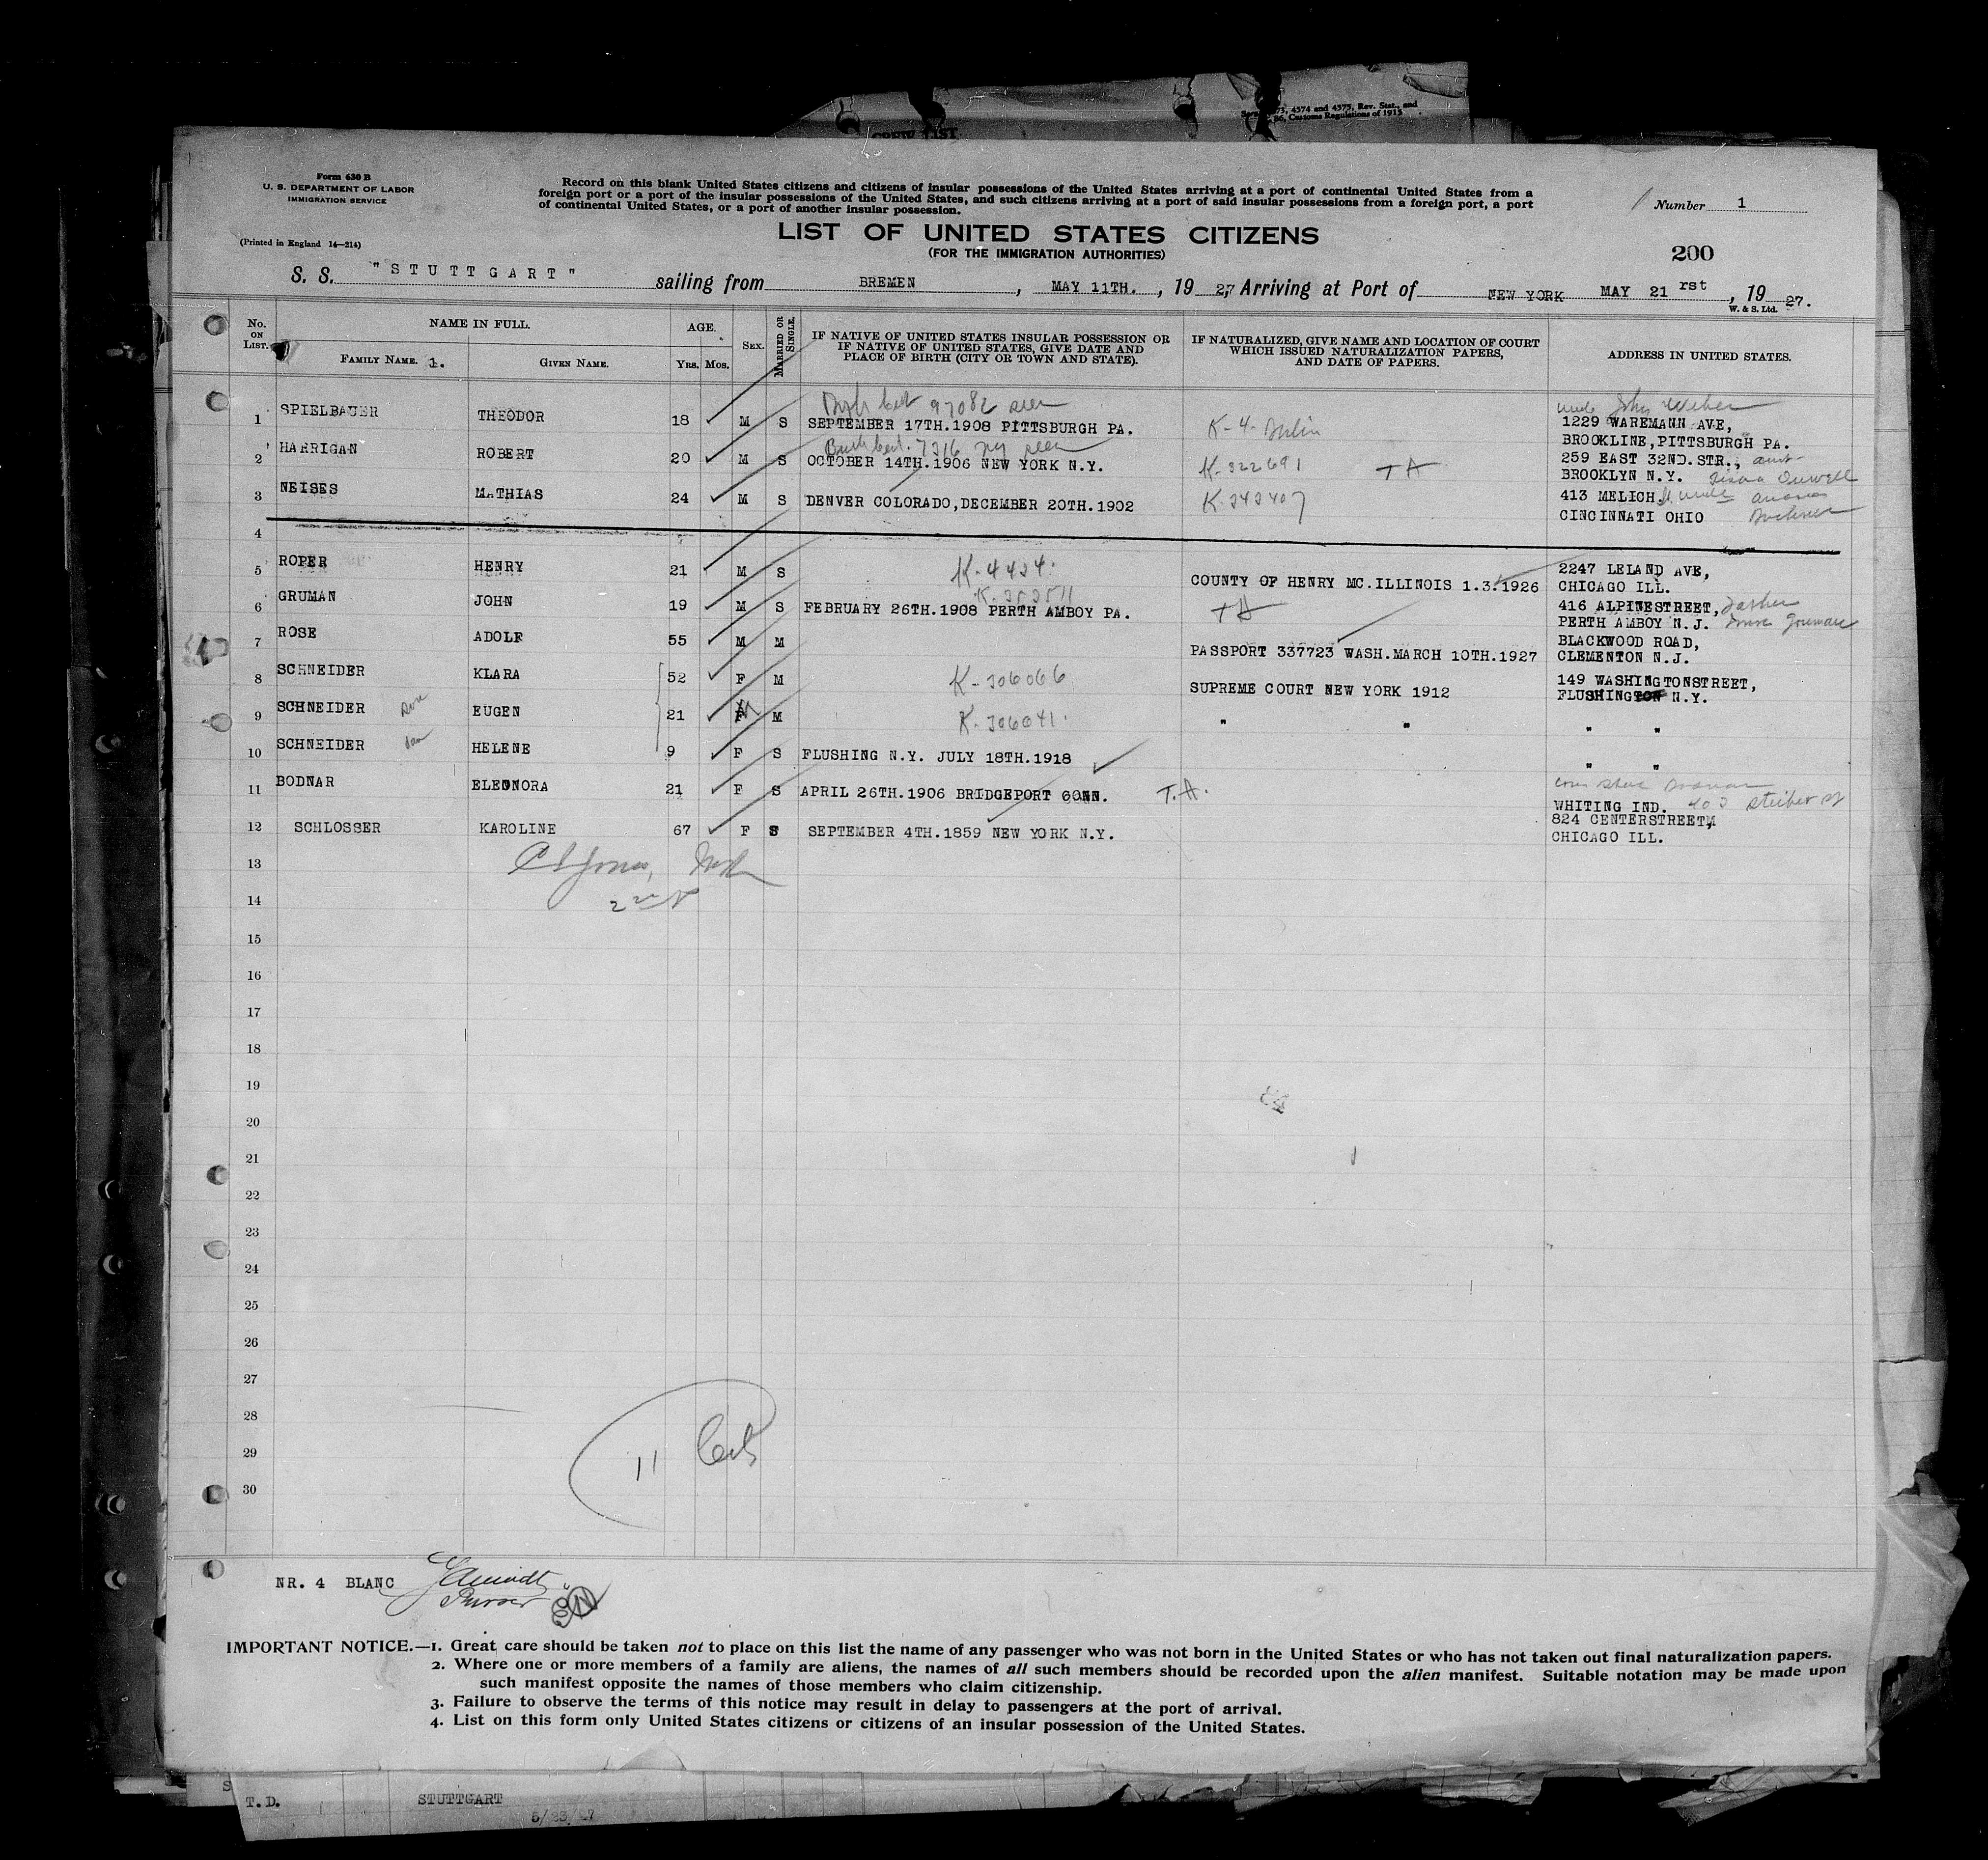 CREW LIST
4374 and 4375, Rev. Stat., and
86, Customs Regulations of 1915
Form 630 B
U. S. DEPARTMENT OF LABOR
IMMIGRATION SERVICE
(Printed in England 14—214)
Record on this blank United States citizens and citizens of insular possessions of the United States arriving at a port of continental United States from a
foreign port or a port of the insular possessions of the United States, and such citizens arriving at a port of said insular possessions from a foreign port, a port
of continental United States, or a port of another insular possession.
Number 1
LIST OF UNITED STATES CITIZENS
(FOR THE IMMIGRATION AUTHORITIES)
200
S. S. "STUTTGART" sailing from BREMEN, MAY 11TH., 19 27, Arriving at Port of NEW YORK MAY 21 rst, 19 27.
W. & S. Ltd.
No. ON LIST.
NAME IN FULL.
FAMILY NAME. 1.
GIVEN NAME.
AGE.
YRS. MOS.
SEX.
MARRIED OR SINGLE.
IF NATIVE OF UNITED STATES INSULAR POSSESSION OR
IF NATIVE OF UNITED STATES, GIVE DATE AND
PLACE OF BIRTH (CITY OR TOWN AND STATE).
IF NATURALIZED, GIVE NAME AND LOCATION OF COURT
WHICH ISSUED NATURALIZATION PAPERS,
AND DATE OF PAPERS.
ADDRESS IN UNITED STATES.
97082 seen
uncle John Weber
1 SPIELBAUER THEODOR 18 M S SEPTEMBER 17TH.1908 PITTSBURGH PA. K-4- 1229 WAREMANN AVE,
BROOKLINE, PITTSBURGH PA.
Birth cert. 7316 seen
2 HARRIGAN ROBERT 20 M S OCTOBER 14TH.1906 NEW YORK N.Y. K-322691 TA 259 EAST 32ND.STR., aunt
BROOKLYN N.Y.
3 NEISES MATHIAS 24 M S DENVER COLORADO,DECEMBER 20TH.1902 K-343407 413 MELICH. uncle
CINCINNATI OHIO
4
5 ROPER HENRY 21 M S K-4424. COUNTY OF HENRY MC.ILLINOIS 1.3.1926 2247 LELAND AVE,
CHICAGO ILL.
6 GRUMAN JOHN 19 M S FEBRUARY 26TH.1908 PERTH AMBOY PA. TA 416 ALPINESTREET, father
PERTH AMBOY N.J.
7 ROSE ADOLF 55 M M PASSPORT 337723 WASH.MARCH 10TH.1927 BLACKWOOD ROAD,
CLEMENTON N.J.
8 SCHNEIDER KLARA 52 F M K-306066 SUPREME COURT NEW YORK 1912 149 WASHINGTONSTREET,
FLUSHINGTON N.Y.
9 SCHNEIDER EUGEN 21 M M K-306041. " " " "
10 SCHNEIDER HELENE 9 F S FLUSHING N.Y. JULY 18TH.1918 " "
11 BODNAR ELEONORA 21 F S APRIL 26TH.1906 BRIDGEPORT CONN. T.A.
WHITING IND.
12 SCHLOSSER KAROLINE 67 F S SEPTEMBER 4TH.1859 NEW YORK N.Y. 824 CENTERSTREET
CHICAGO ILL.
13
14
15
16
17
18
19
20
21
22
23
24
25
26
27
28
29
30
11
NR. 4 BLANC
Purser
IMPORTANT NOTICE.—1. Great care should be taken not to place on this list the name of any passenger who was not born in the United States or who has not taken out final naturalization papers.
2. Where one or more members of a family are aliens, the names of all such members should be recorded upon the alien manifest. Suitable notation may be made upon
such manifest opposite the names of those members who claim citizenship.
3. Failure to observe the terms of this notice may result in delay to passengers at the port of arrival.
4. List on this form only United States citizens or citizens of an insular possession of the United States.
T.D. STUTTGART